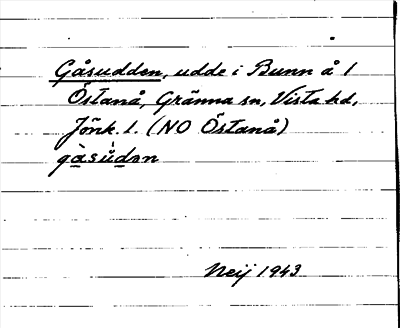 Gåsudden, udde i Bunn å 1
Östanå, Gränna sn, Vista hd,
Jönk. l. (NO Östanå)
gàsu̇̀dən
Neij 1943